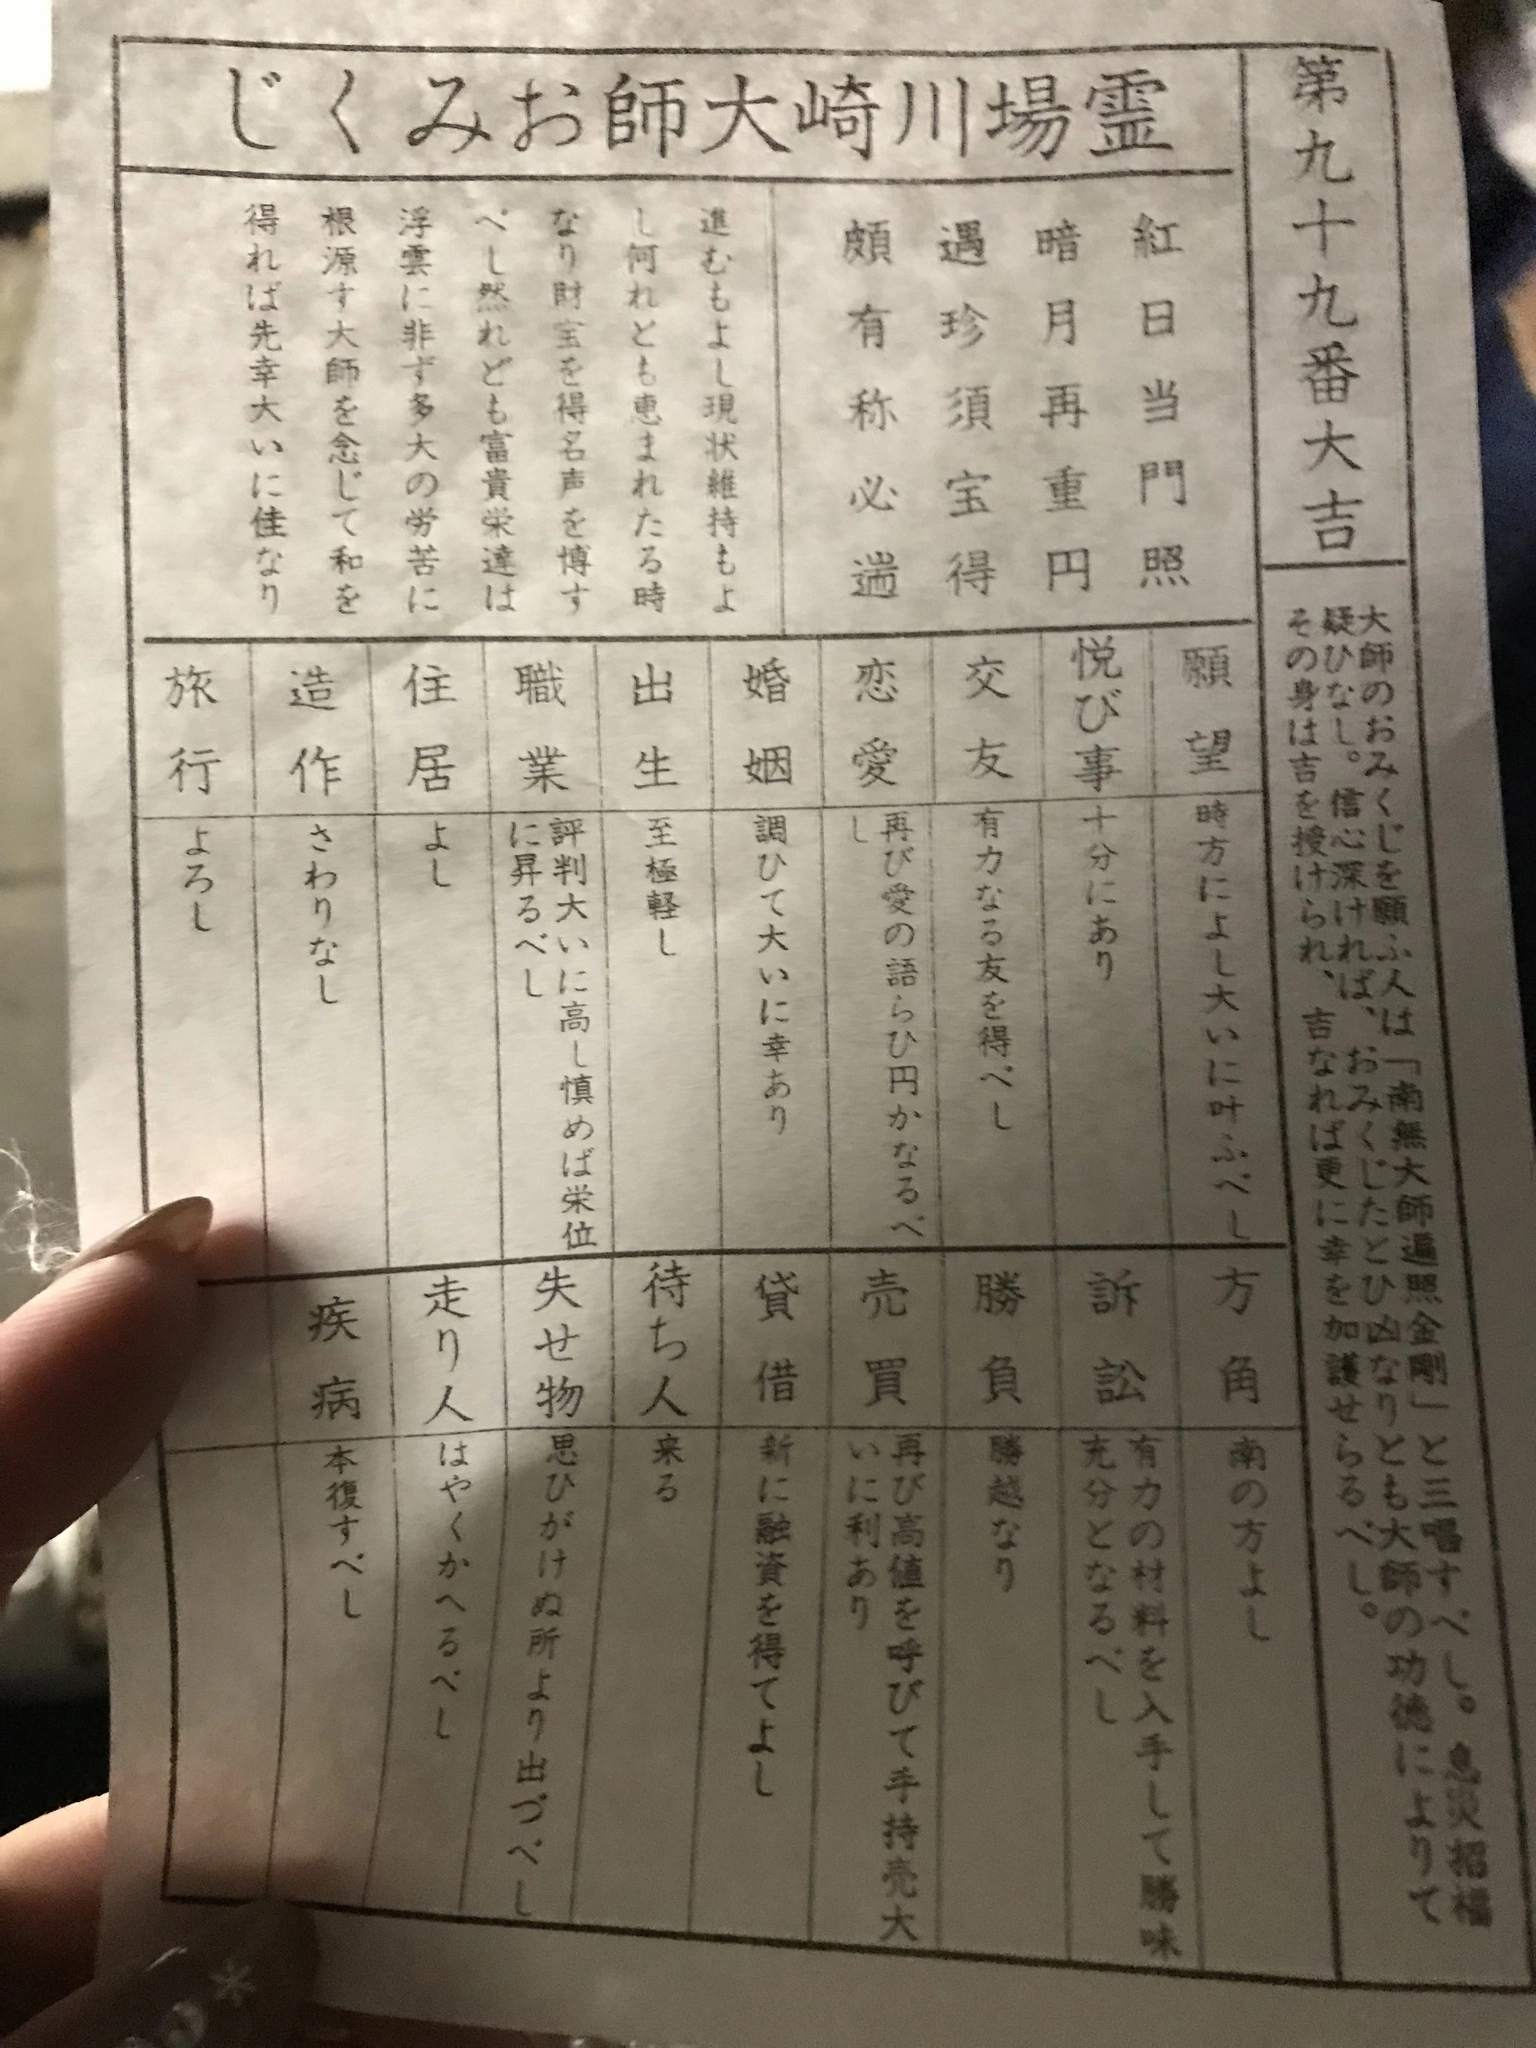 第九十九番大吉
大師のおみくじを願ふ人は「南無大師遍照金剛」と三唱すべし。息災招福
疑ひなし。信心深ければ、おみくじたとひ凶なりとも大師の功徳によりて
その身は吉を授けられ、吉なれば更に幸を加護せらるべし。
霊場川崎大師おみくじ
紅日当門照
暗月再重円
遇珍須宝得
頗有称必遄
進むもよし現状維持もよ
し何れとも恵まれたる時
なり財宝を得名声を博す
べし然れども富貴栄達は
浮雲に非ず多大の労苦に
根源す大師を念じて和を
得れば先幸大いに佳なり
願望
時方によし大いに叶ふべし
悦び事
十分にあり
交友
有力なる友を得べし
恋愛
再び愛の語らひ円かなるべ
し
婚姻
調ひて大いに幸あり
出生
至極軽し
職業
評判大いに高し慎めば栄位
に昇るべし
住居
よし
造作
さわりなし
旅行
よろし
方角
南の方よし
訴訟
有力の材料を入手して勝味
充分となるべし
勝負
勝越なり
売買
再び高値を呼びて手持売大
いに利あり
貸借
新に融資を得てよし
待ち人
来る
失せ物
思ひがけぬ所より出づべし
走り人
はやくかへるべし
疾病
本復すべし